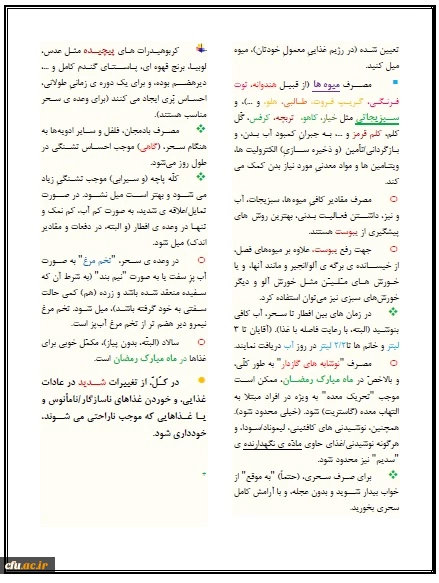 تعیین شده (در رژیم غذایی معمول خودتان)، میوه
میل کنید.
مصــرف میوه ها (از قبیــل هندوانه، توت
فرنگــی، گریــپ فروت، طــالبی، هلو، و ...)، و
ســبزیجاتی مثل خیار، کاهو، تربچه، کرفس، گل
کلم، کلم قرمز و ...، به جبران کمبود آب بــدن، و
بازگردانی/تأمین (و ذخیره ســازی) الکترولیت ها،
ویتــامین ها و مواد معدنی مورد نیاز بدن کمک می
کند.
مصرف مقادیر کافی میوه‌ها، سبزیجات، آب
و نیز، داشــتن فعالیــت بدنی، بهترین روش های
پیشگیری از یبوست هستند.
جهت رفع یبوست، علاوه بر میوه‌های فصل،
از خیســانده ی برگه ی آلو/انجیر و مانند آنها، و یا
خــورش هــای مُــلیّــن مثــل خورش آلو و دیگر
خورش‌های سبزی نیز می‌توان استفاده کرد.
در زمان های بین افطار تا سحر، آب کافی
بنوشــید (البته، با رعایت فاصله با غذا). (آقایان تا ۳
لیتر و خانم ها تا۲/۲ لیتر در روز آب دریافت نمایند.
مصــرف "نوشابه های گازدار" به طور کلّی،
و بالاخصّ در ماه مبارک رمضــان، ممکن اســت
موجب "تحریک معده" به ویژه در افراد مبتلا به
التهاب معده (گاستریت) شود. (خیلی محدود شود).
همچنین، نوشیدنی های کافئینی، لیموناد/سـودا، و
هرگونه نوشیدنی/غذای حاوی مادّه ی نگهدارنده ی
"سدیم" نیز محدود شود.
برای صــرف سـحری، (حتماً) "به موقع" از
خواب بیدار شــوید و بدون عجله، و با آرامش کامل
سحری بخورید.
کربوهیـدرات هـای پیچیـده مثـل عدس،
لوبیـا، برنج قهوه ای، پاسـتـای گنـدم کامل و ...،
دیرهضــم بوده، و برای یک دوره ی زمانی طولانی،
احسـاس پُری ایجاد می کنند (برای وعده ی سـحر
مناسب هستند).
مصـرف بادمجان، فلفل و سـایر ادویه‌ها به
هنگام سحر، (گاهی) موجب احسـاس تشـنگی در
طول روز می‌شود.
کلّه پاچه (و سـیرابی) موجب تشنگی زیاد
می شــود و بهتر اسـت میل نشــود. در صــورت
تمایل/علاقه ی شدید، به صورت کم آب، کم نمک و
تنهـا در وعده ی افطار (و البته، در دفعات و مقادیر
اندک) میل شود.
در وعده ی ســحر، "تخم مرغ" به صـورت
آب پز سفت یا به صورت "نیم بند" (به شرط آن که
سـفیده منعقد شده باشد و زرده (هم) کمی حالت
سـفتی به خود گرفته باشـد)، میل شود. تخم مرغ
نیمرو دیر هضم تر از تخم مرغ آب‌پز است.
سالاد (البتّه، بدون پیاز)، مکمّل خوبی برای
غذاها در ماه مبارک رمضان است.
در کـلّ، از تغییرات شـدید در عادات
غذایی، و خوردن غذاهای ناسازگار/نامأنوس و
یـا غـذاهایی که موجب ناراحتی می شــوند،
خودداری شود.
cfu.ac.ir